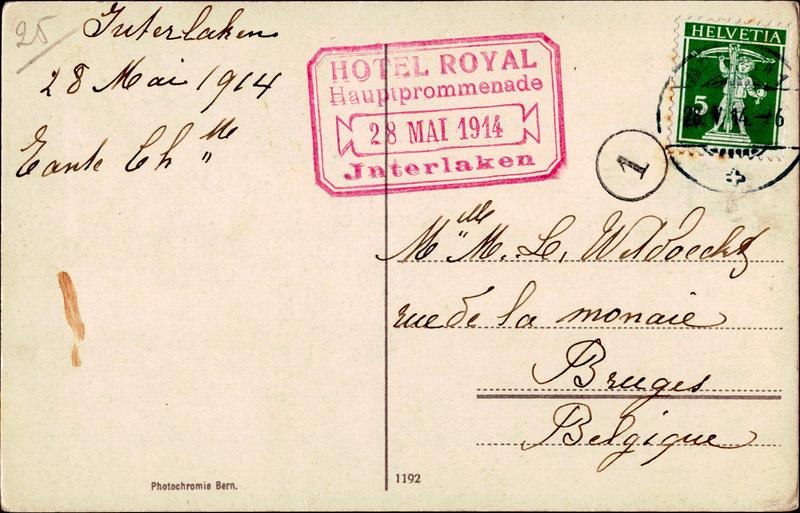 25
Interlaken
28 Mai 1914
Tante Ch
HOTEL ROYAL
Hauptprommenade
28 MAI 1914
Jnterlaken
HELVETIA
5
28 V 14 - 6
1
Mlle M. L.
rue de la monaie
Bruges
Belgique
Photochromie Bern.
1192